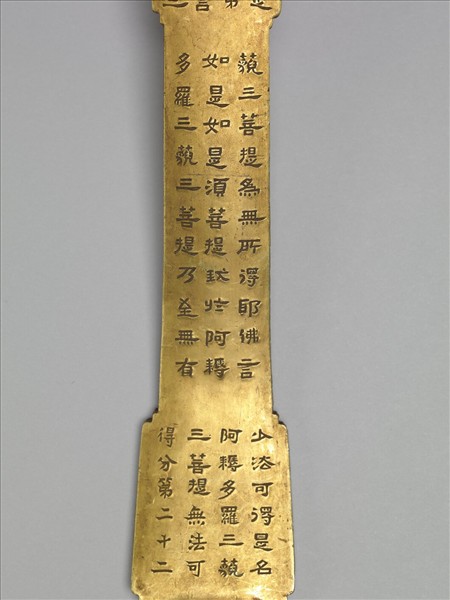 藐三菩提為無所得耶佛言
如是如是須菩提我於阿耨
多羅三藐三菩提乃至無有
少法可得是名
阿耨多羅三藐
三菩提無法可
得分第二十二